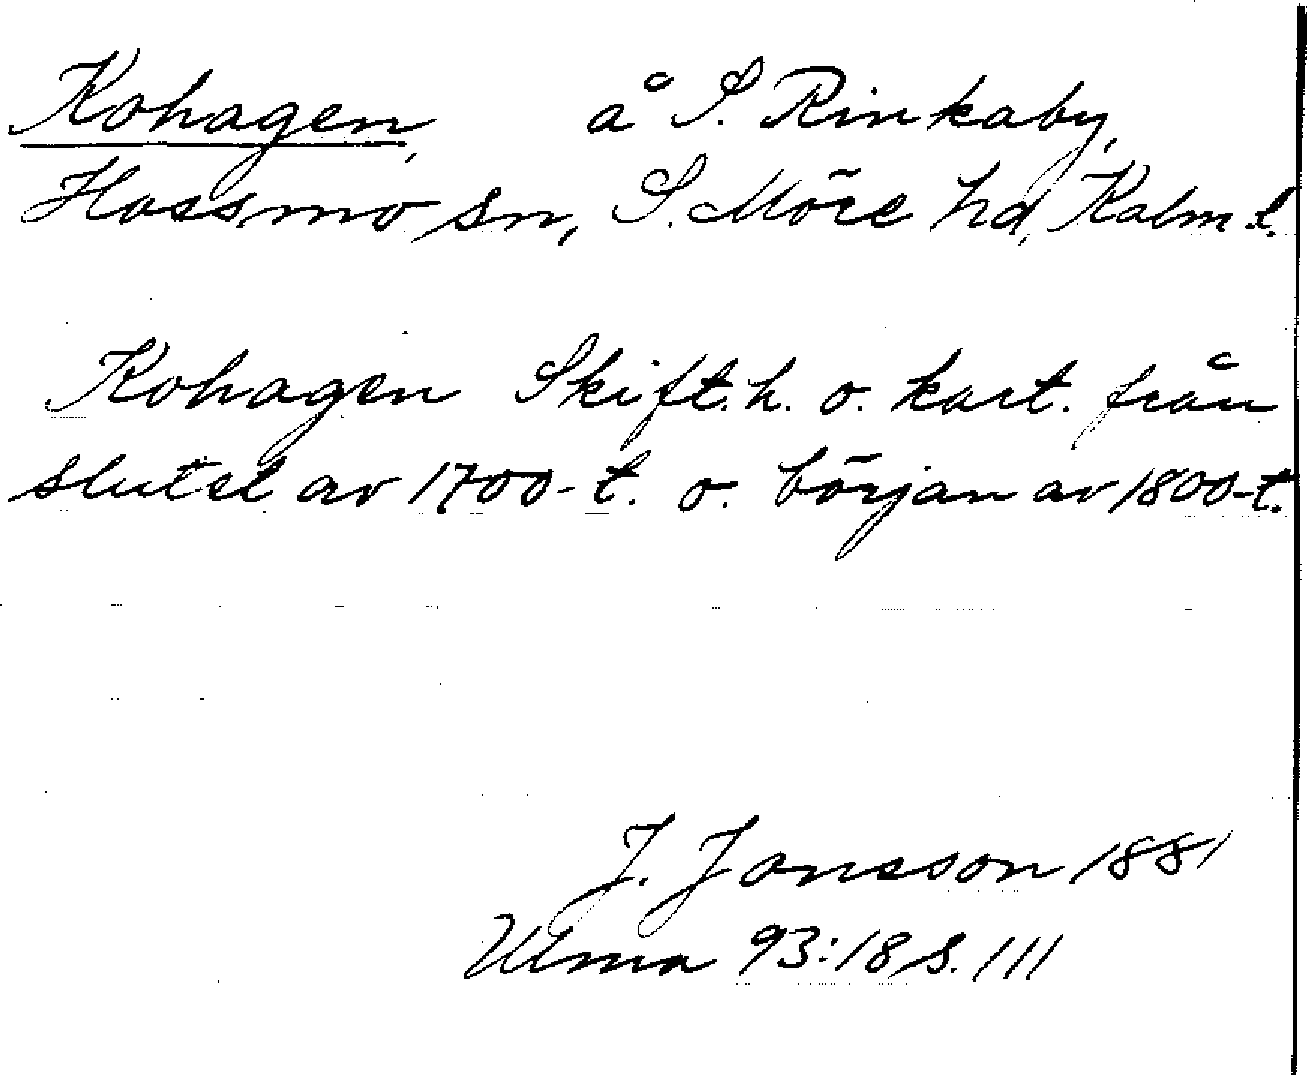 Kohagen, å S. Rinkaby,
Hossmo sn, S. Möre hd, Kalm. l.
Kohagen Skift.h. o. kart. från
slutet av 1700-t. o. början av 1800-t.
J. Jonsson 1881
Ulma 93:18 s. 111